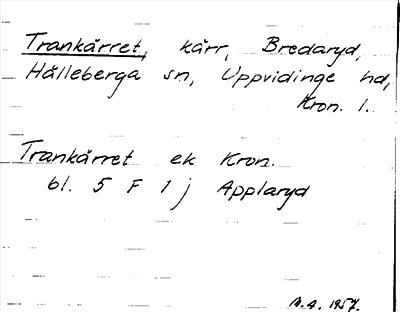 Trankärret, kärr, Bredaryd,
Hälleberga sn, Uppvidinge hd,
Kron. l.
Trankärret ek Kron.
bl. 5 F 1 j Applaryd
M.A. 1957.